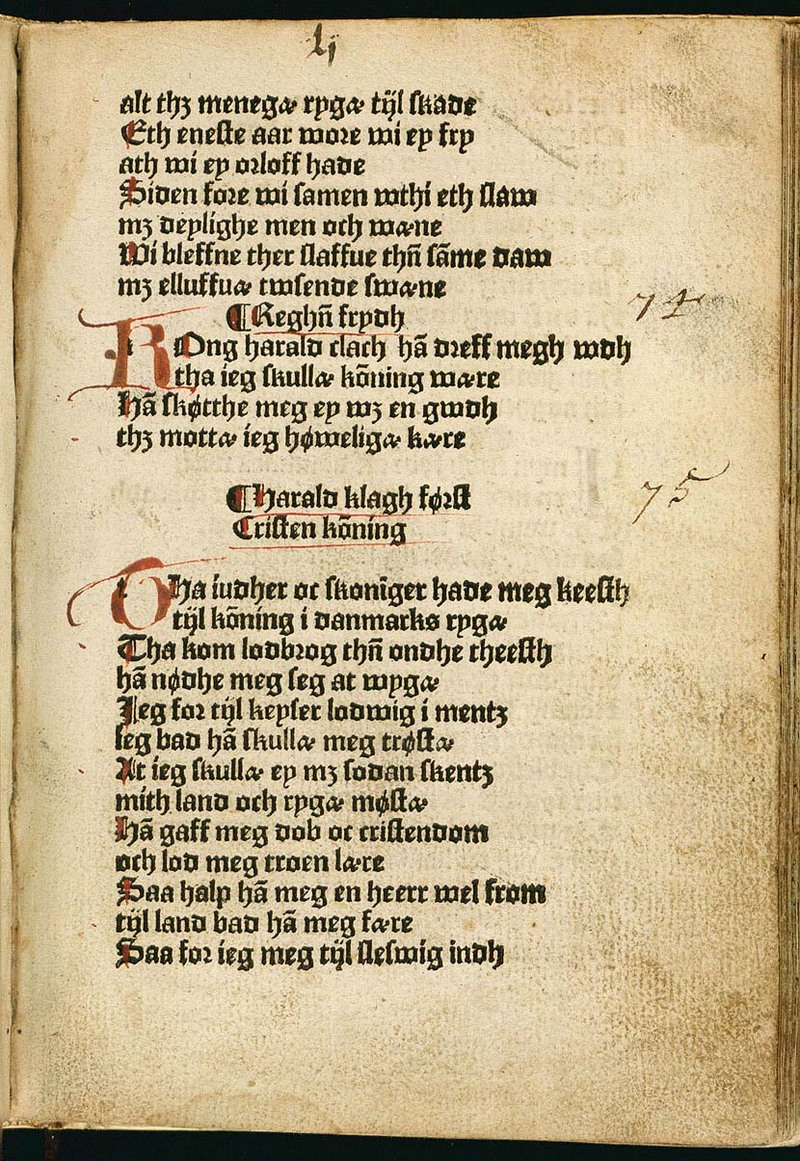 lj
alt thꝫ menegæ rygæ tijl skade
Eth eneste aar wore wi ey fry
ath wi ey orloff hade
Siden fore wi samen wthi eth slaw
mꝫ deylighe men och wæne
Wi bleffne ther slaffue thn̄ sāme daw
mꝫ elluffuæ twsende swæne
¶Reghn̄ frydh
74
KOng harald clach hā dreff megh wdh
tha ieg skullæ kōning wære
Hā skøtthe meg ey wꝫ en gwdh
thꝫ mottæ ieg høweligæ kære
¶Harald klagh først
75
Cristen kōning
THa iudher oc skonīger hade meg keesth
tijl kōning i danmarks rygæ
Tha kom lodbrog thn̄ ondhe theesth
hā nødhe meg seg at wygæ
Jeg for tijl keyser lodwig i mentz
Ieg bad hā skullæ meg trøstæ
At ieg skullæ ey mꝫ sodan skentz
mith land och rygæ møstæ
Hā gaff meg dob oc cristendom
och lod meg troen lære
Saa halp hā meg en heerr wel from
tijl land bad hā meg fære
Saa for ieg meg tijl sleswig indh